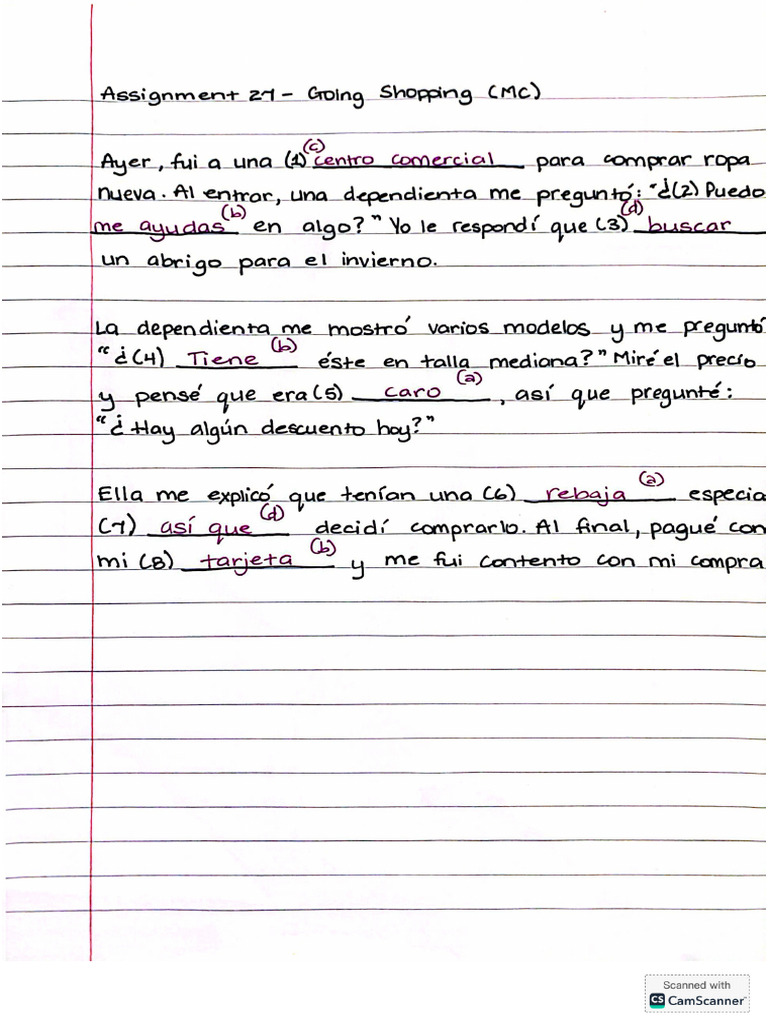 Assignment 27 - Going Shopping (MC)
(c)
Ayer, fui a una (1) centro comercial para comprar ropa
nueva. Al entrar, una dependienta me preguntó: "¿(2) Puedo
(b) (d)
me ayudas en algo?" Yo le respondí que (3) buscar
un abrigo para el invierno.
La dependienta me mostró varios modelos y me preguntó
(b)
"¿(4) Tiene éste en talla mediana?" Miré el precio
(a)
y pensé que era (5) caro, así que pregunté:
"¿Hay algún descuento hoy?"
(a)
Ella me explicó que tenían una (6) rebaja especia
(d)
(7) así que decidí comprarlo. Al final, pagué con
(b)
mi (8) tarjeta y me fui contento con mi compra
Scanned with
CS CamScanner